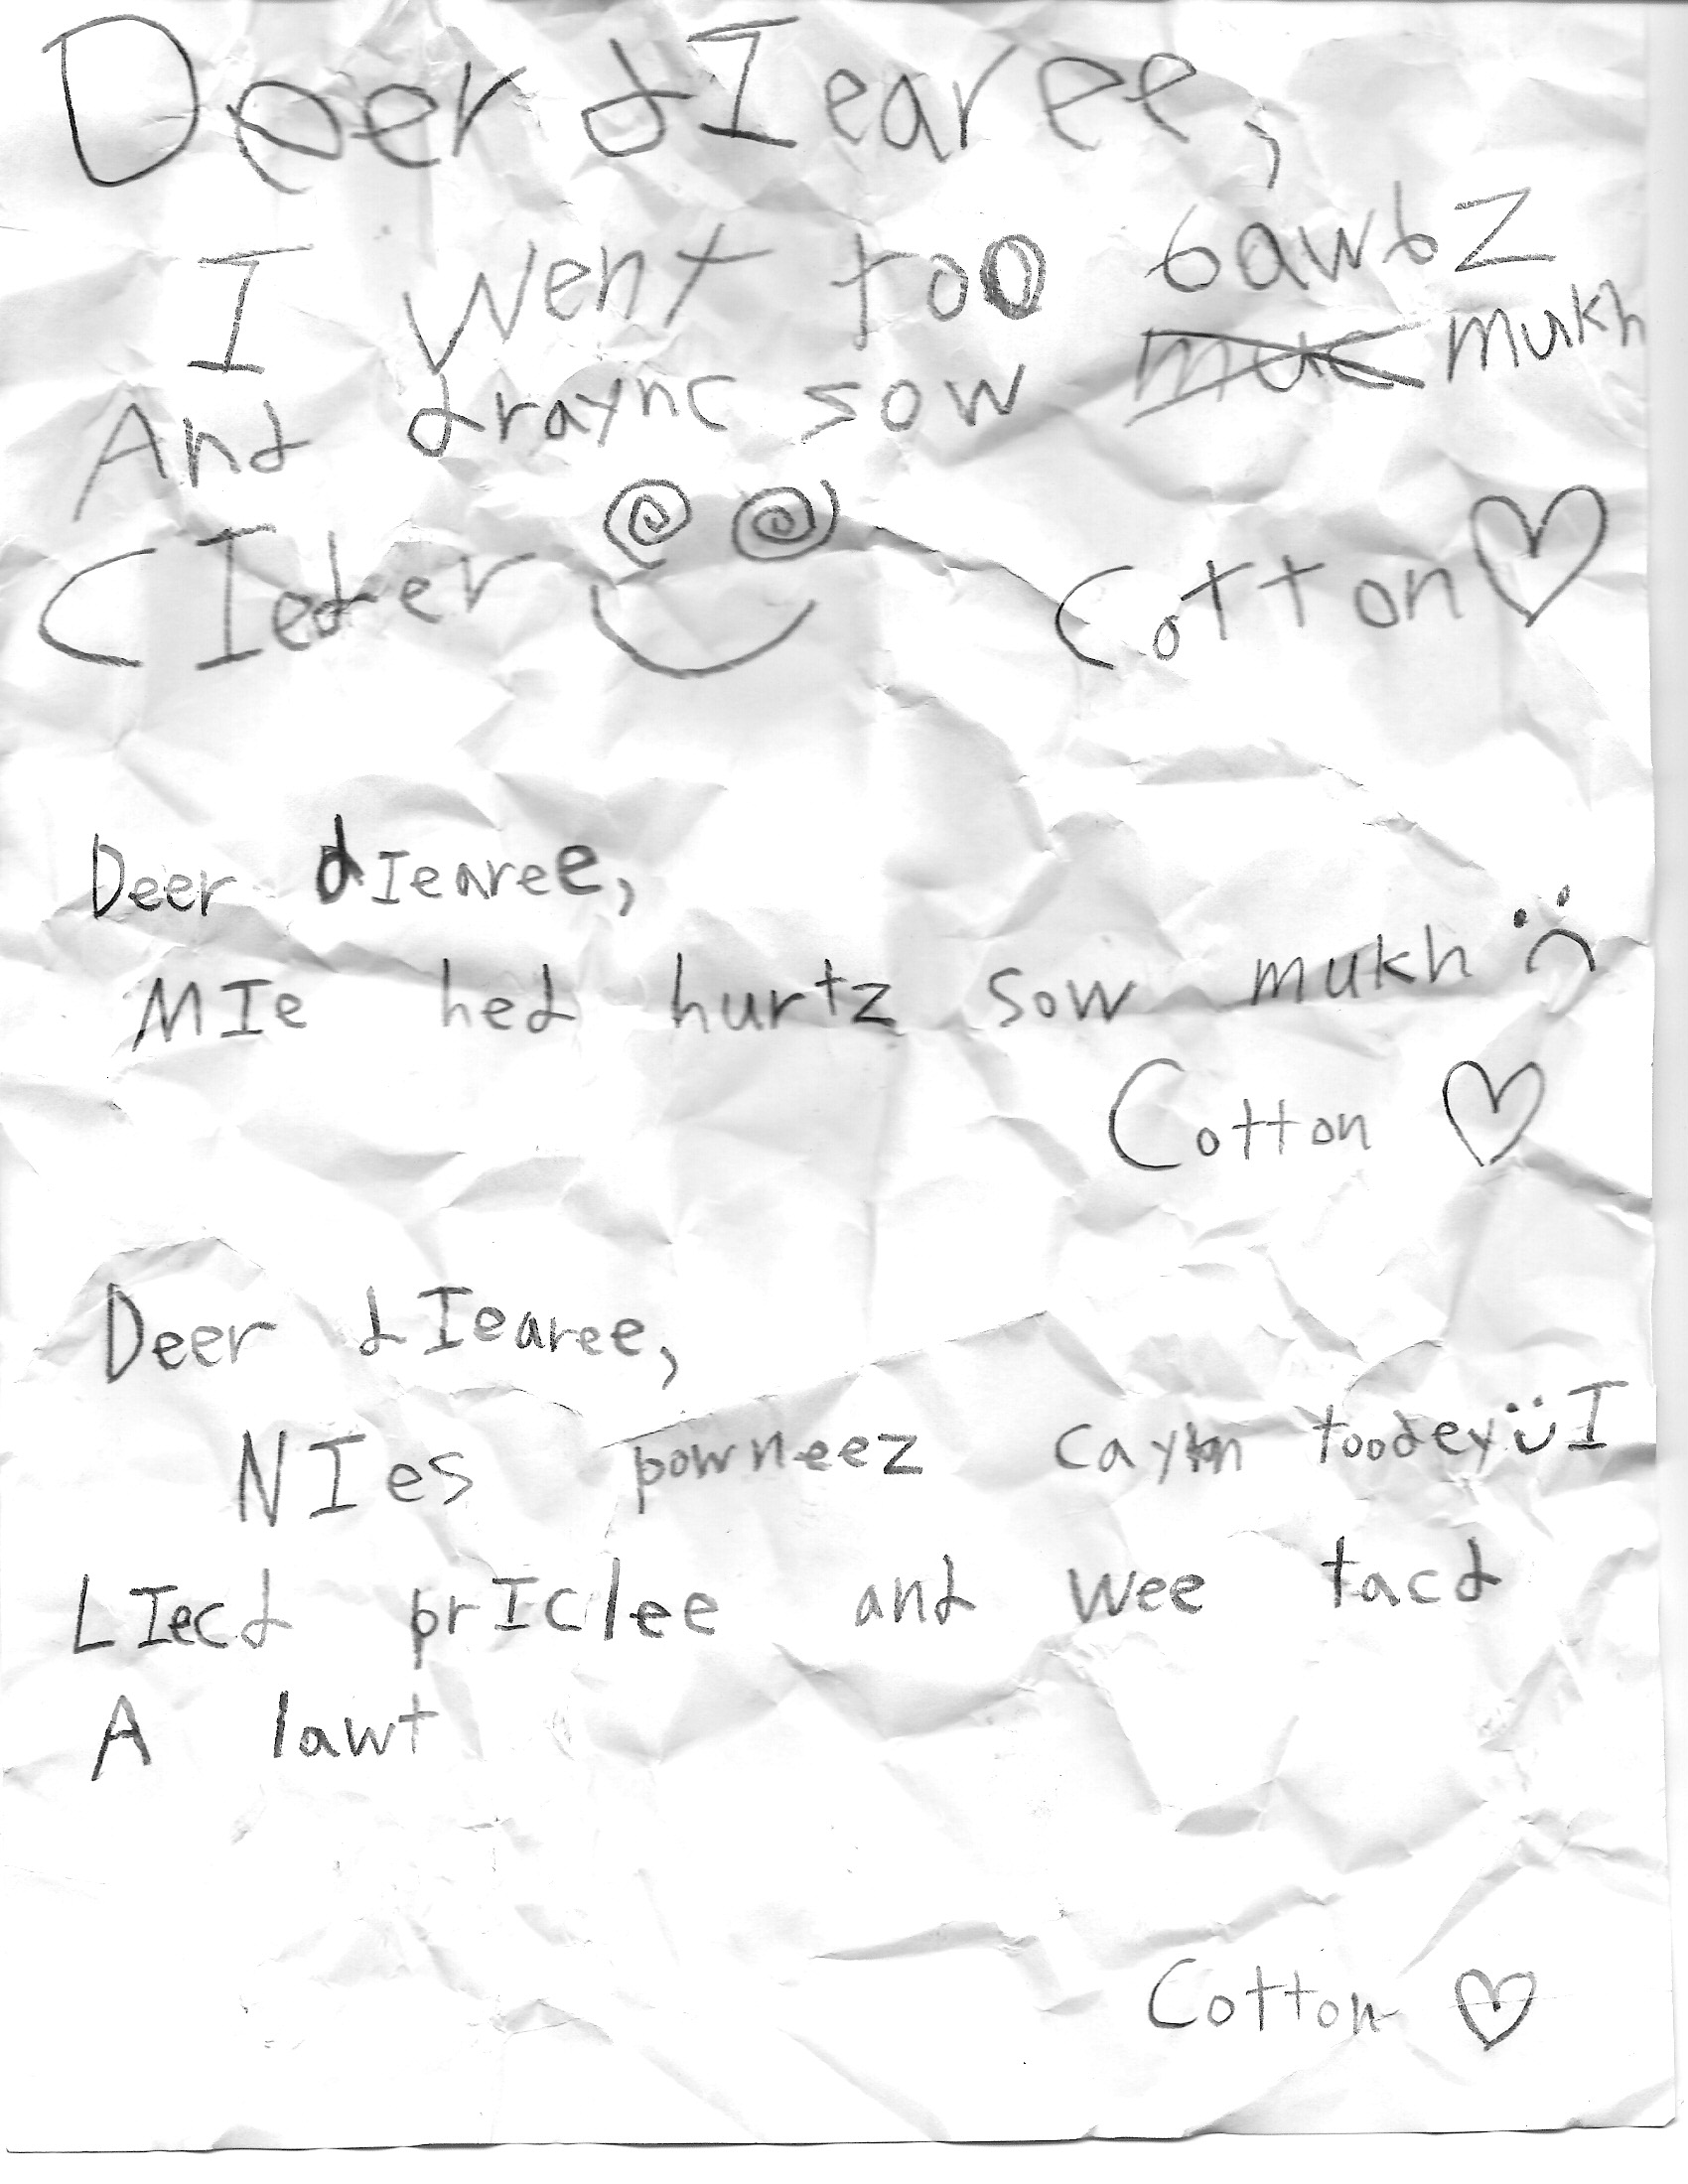 Deer dIearee,
I went too bawbz
And draync sow muc mukh
CIeder
Cotton
Deer dIearee,
MIe hed hurtz sow mukh
Cotton
Deer dIearee,
NIes powneez caym toodey I
LIecd prIclee and wee tacd
A lawt
Cotton